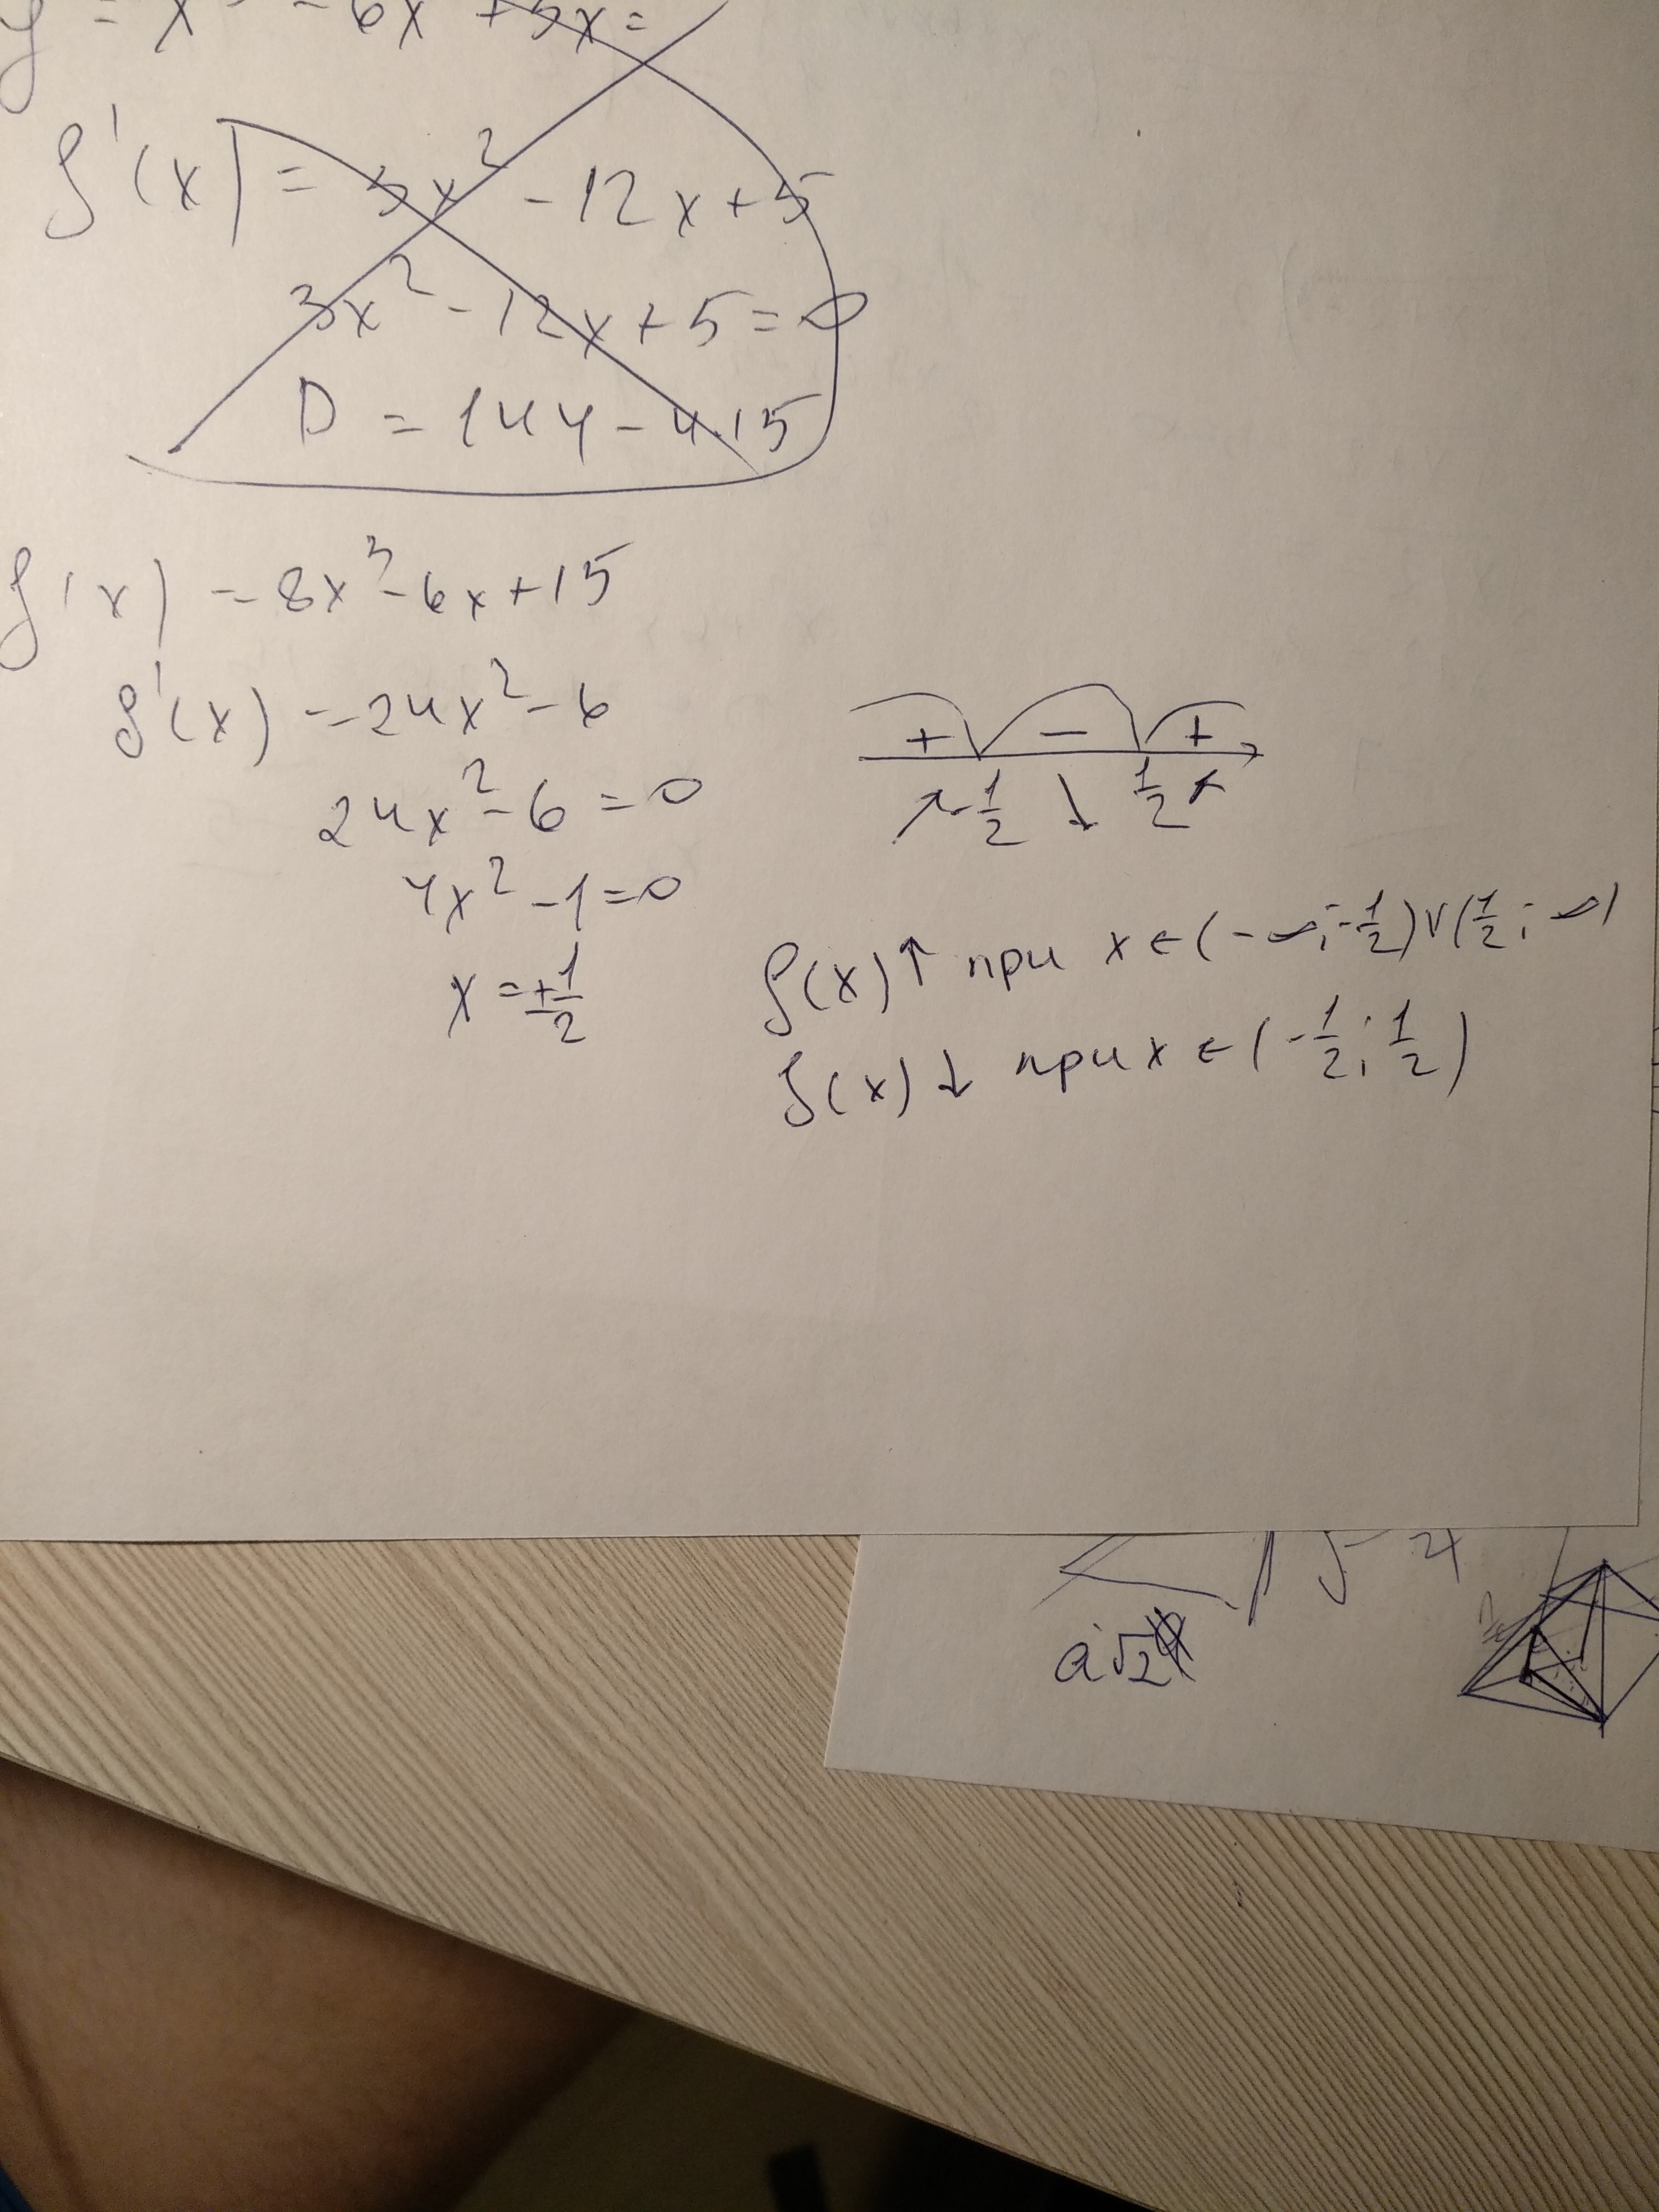 y = x - 6x + 5x =
f'(x) = 3x² - 12x + 5
3x² - 12x + 5 = 0
D = 144 - 4·15
f(x) = 8x³ - 6x + 15
f'(x) = 24x² - 6
24x² - 6 = 0
4x² - 1 = 0
x = ±1/2
+ - +
↗ -1/2 ↘ 1/2 ↗
f(x)↑ при x ∈ (-∞; -1/2) ∨ (1/2; ∞)
f(x)↓ при x ∈ (-1/2; 1/2)
a√2